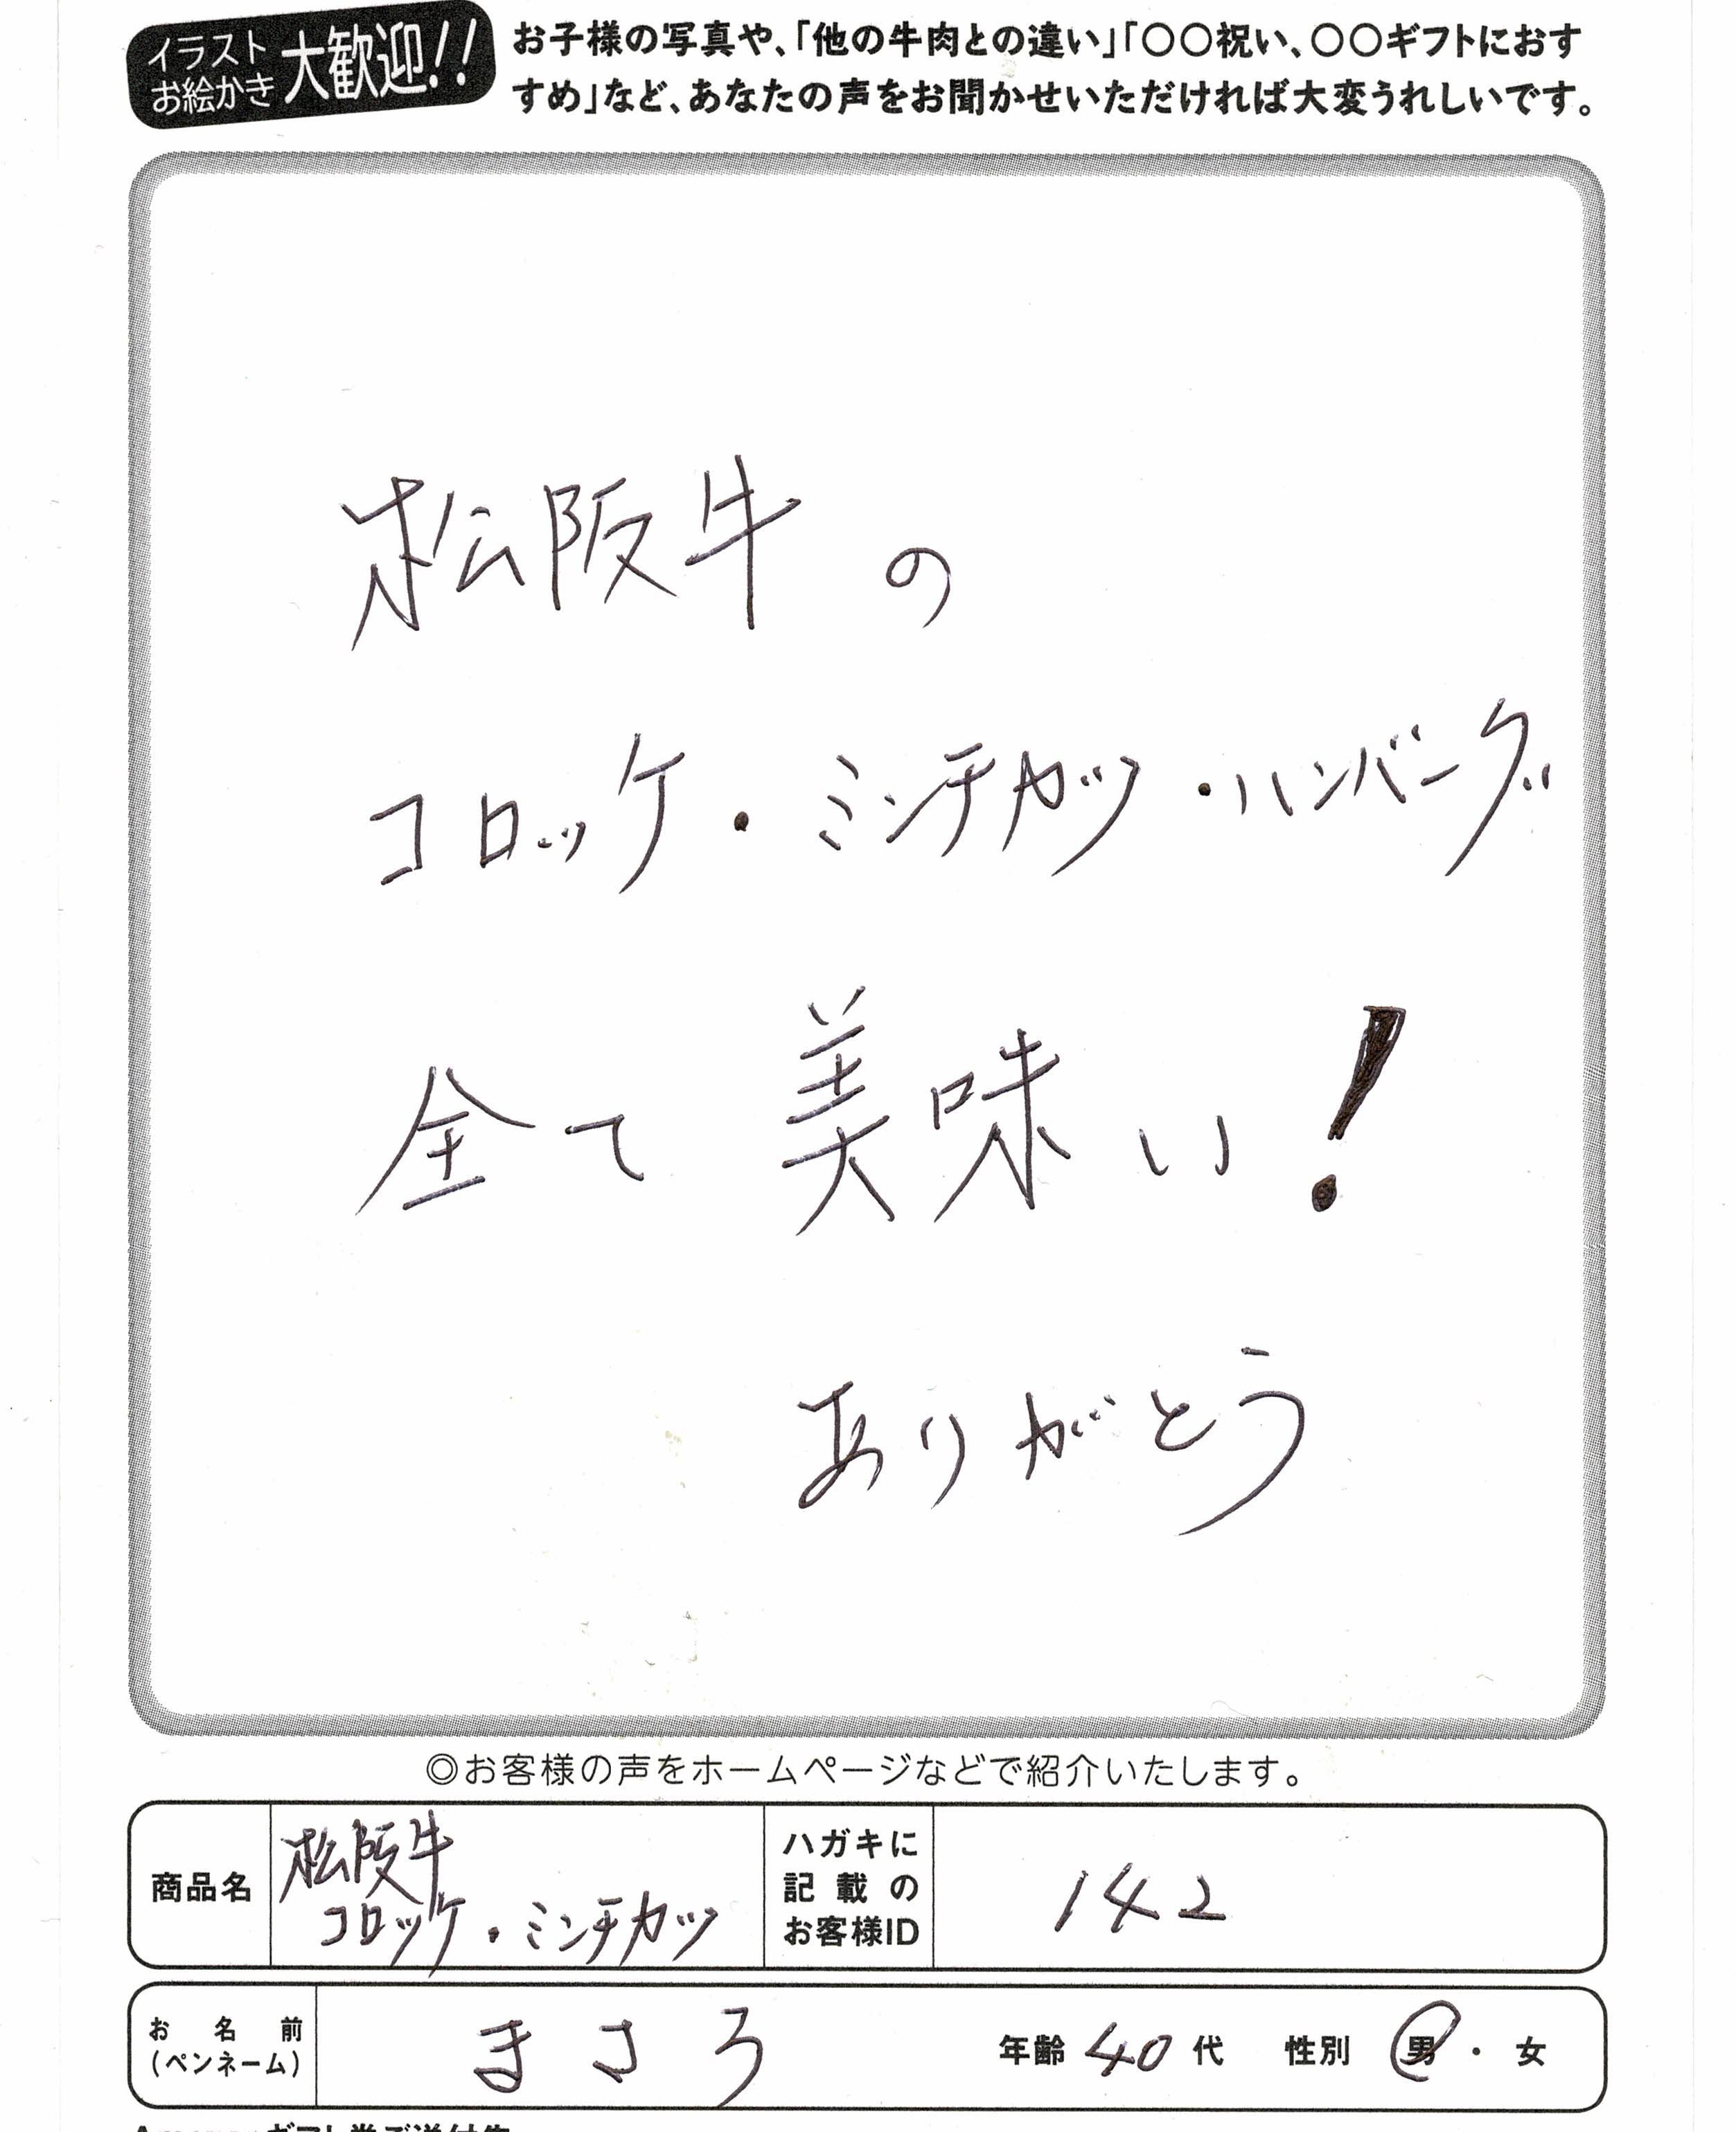 イラスト
お絵かき
大歓迎!!
お子様の写真や、「他の牛肉との違い」「〇〇祝い、〇〇ギフトにおす
すめ」など、あなたの声をお聞かせいただければ大変うれしいです。
松阪牛の
コロッケ・ミンチカツ・ハンバーグ
全て美味い!
ありがとう
◎お客様の声をホームページなどで紹介いたします。
商品名
松阪牛
コロッケ・ミンチカツ
ハガキに
記載の
お客様ID
142
お名前
(ペンネーム)
まさろ
年齢 40代 性別 男・女